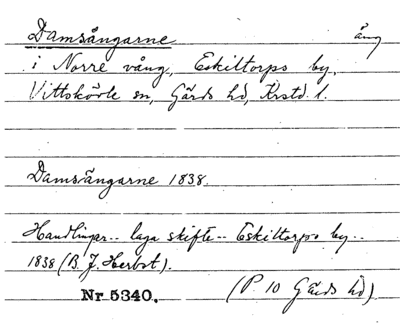 Damsängarne äng
i Norre vång, Eskiltorps by,
Vittskövle sn, Gärds hd, Krstd. l.
Damsängarne 1838.
Handlingar .. laga skifte .. Eskiltorps by ..
1838 (B. J. Herbst).
Nr 5340.
(P 10 Gärds hd)